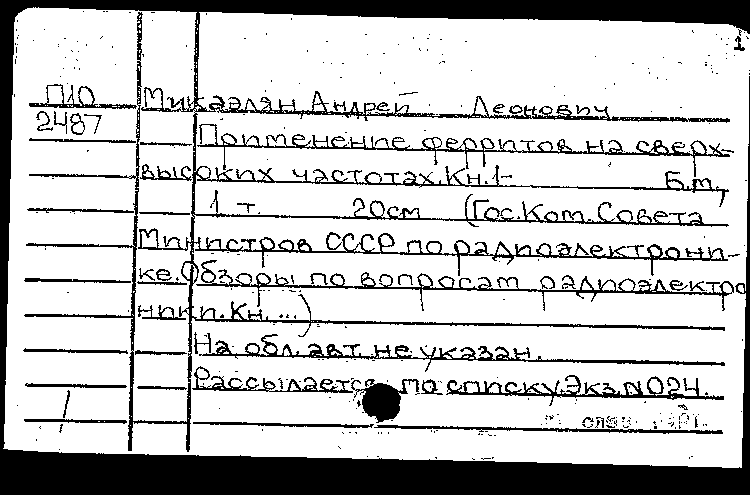 1
П10 Микаэлян, Андрей Леонович
2487 Применение ферритов на сверх-
высоких частотах. Кн. 1- Б.м.,
1 т. 20см (Гос. Ком. Совета
Министров СССР по радиоэлектрони-
ке. Обзоры по вопросам радиоэлектро
ники. Кн. ...)
На обл. авт. не указан.
Рассылается по списку. Экз. N024.